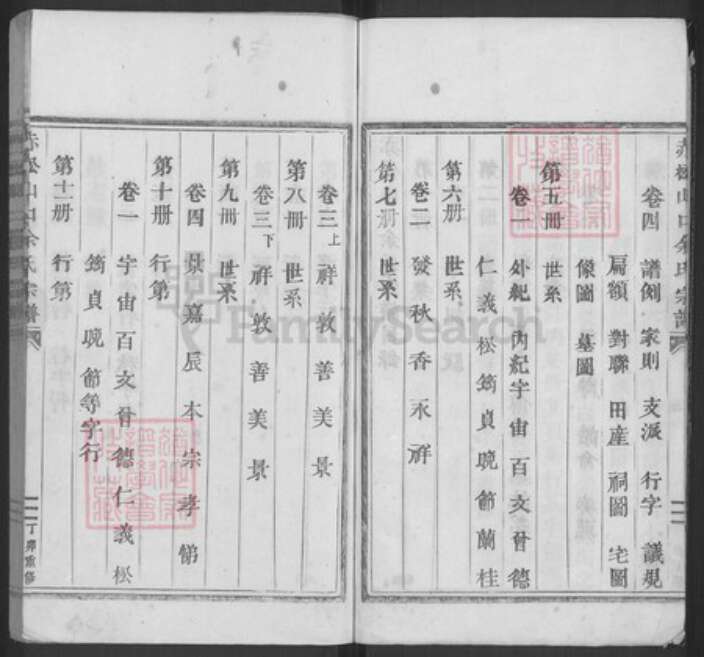 赤松山口余氏宗譜
卷四 譜例 家則 支派 行字 議規
扁額 對聯 田産 祠圖 宅圖
像圖 墓圖
第五册 世系
卷一 外紀 內紀宇宙百文晉德
仁義松筠貞晚節蘭桂
第六册 世系
卷二 發秋香永祥
第七册 世系
卷三上 祥敦善美景
第八册 世系
卷三下 祥敦善美景
第九册 世系
卷四 景嘉辰本宗孝悌
第十册 行第
卷一 宇宙百文晉德仁義松
筠貞晚節等字行
第十二册 行第
赤松山口余氏宗譜
丁卯重修
FamilySearch